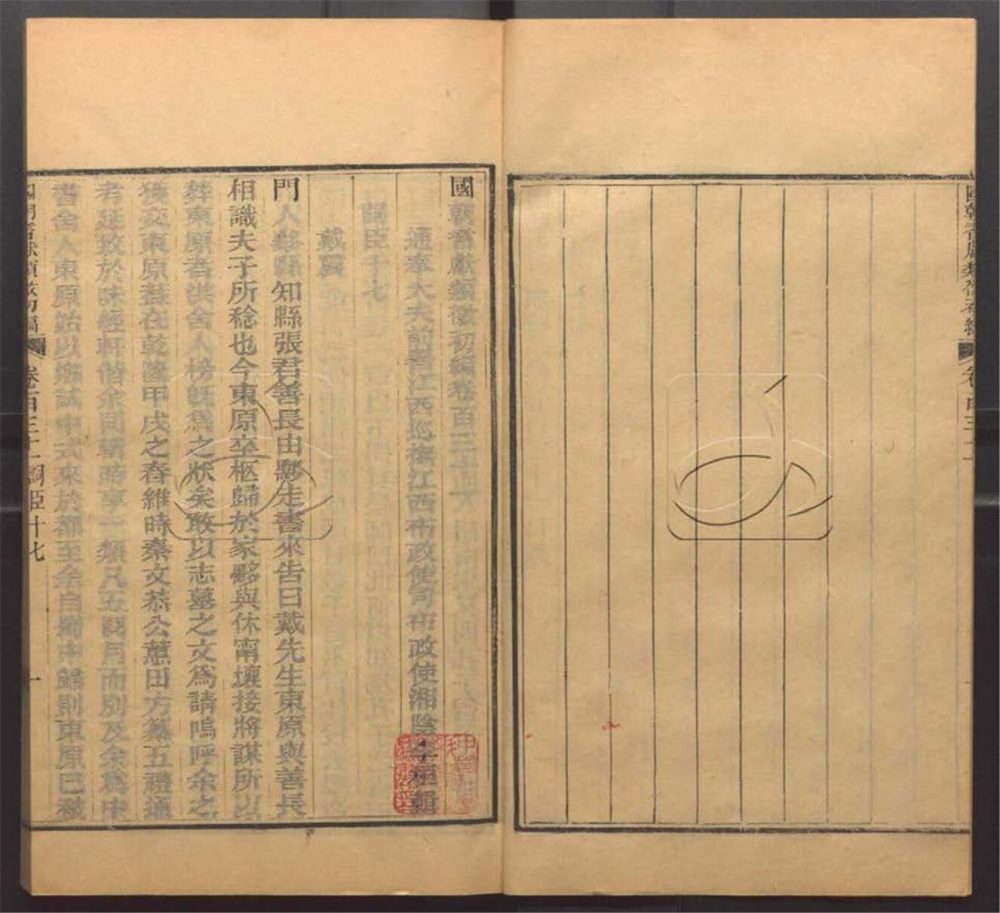 國朝耆獻類徵初編卷百三十一
通奉大夫前署江西巡撫江西布政使司布政使湘陰李桓輯
詞臣十七
戴震
門人黟縣知縣張君善長由黟走書來告曰戴先生東原與善長
相識夫子所稔也今東原卒柩歸於家黟與休甯壤接將謀所以
葬東原者洪舍人榜旣爲之狀矣敢以志墓之文爲請嗚呼余之
獲交東原葢在乾隆甲戌之春維時秦文恭公蕙田方纂五禮通
考延致於味經軒偕余同輯時享一類凡五閱月而別及余爲中
書舍人東原始以鄉試中式來於都至余自蜀中歸則東原已被
卷百三十一 詞臣十七
一